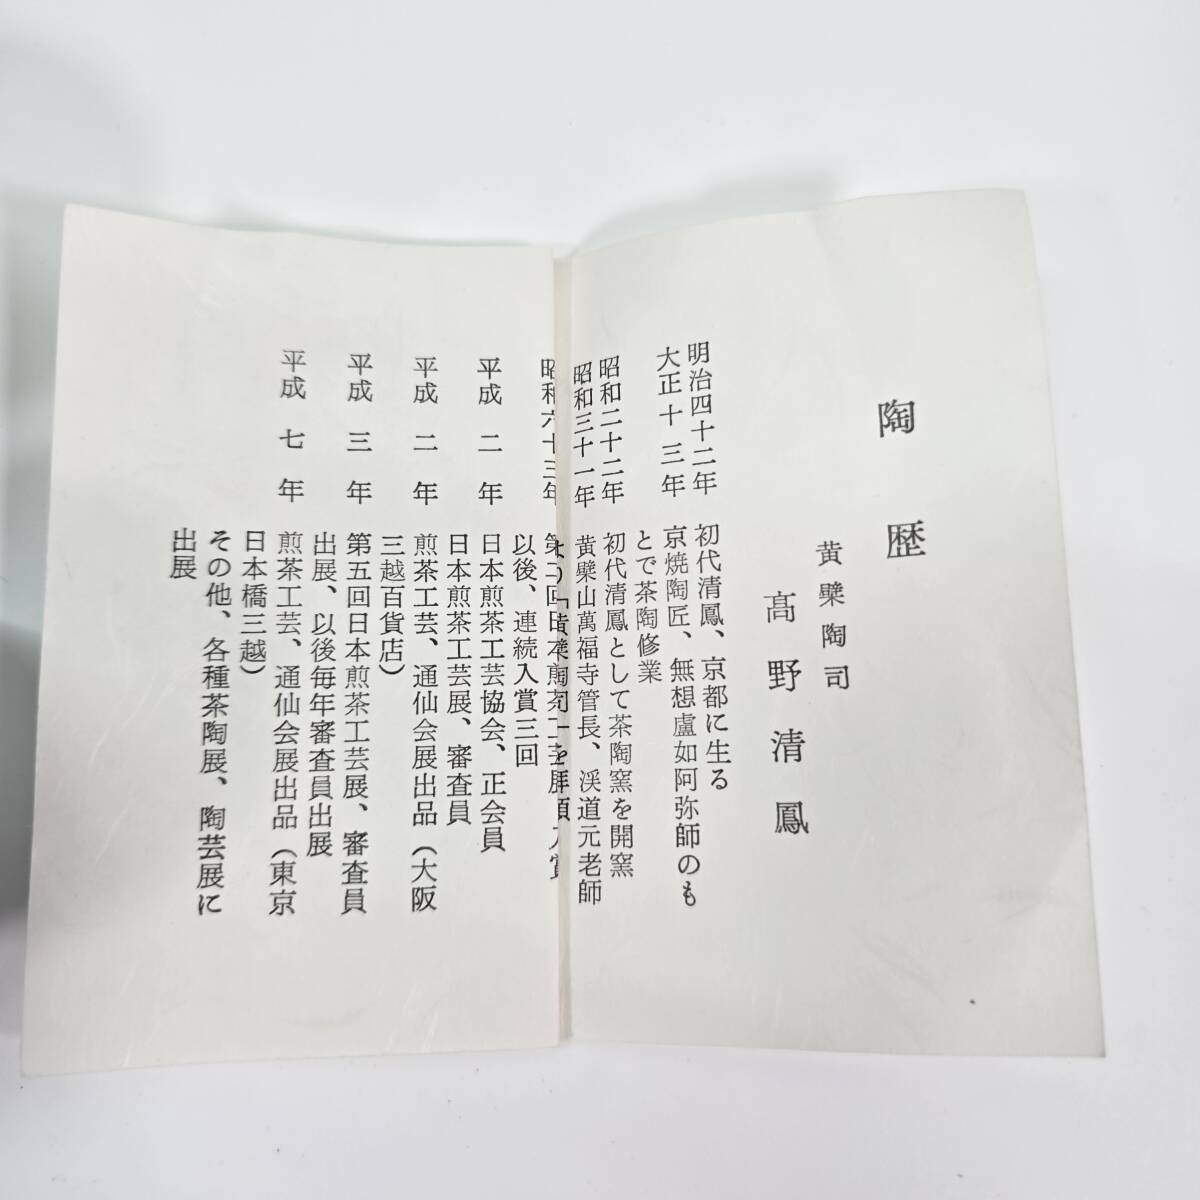 陶歴
黄檗陶司
髙野清鳳
明治四十二年 初代清鳳、京都に生る
大正十三年 京焼陶匠、無想盧如阿弥師のも
とで茶陶修業
昭和二十二年 初代清鳳として茶陶窯を開窯
昭和三十一年 黄檗山萬福寺管長、渓道元老師
より「黄檗陶司」を拝領
昭和六十三年 第二回日本煎茶工芸展 入賞
以後、連続入賞三回
平成二年 日本煎茶工芸協会、正会員
日本煎茶工芸展、審査員
平成二年 煎茶工芸、通仙会展出品(大阪
三越百貨店)
平成三年 第五回日本煎茶工芸展、審査員
出展、以後毎年審査員出展
平成七年 煎茶工芸、通仙会展出品(東京
日本橋三越)
その他、各種茶陶展、陶芸展に
出展